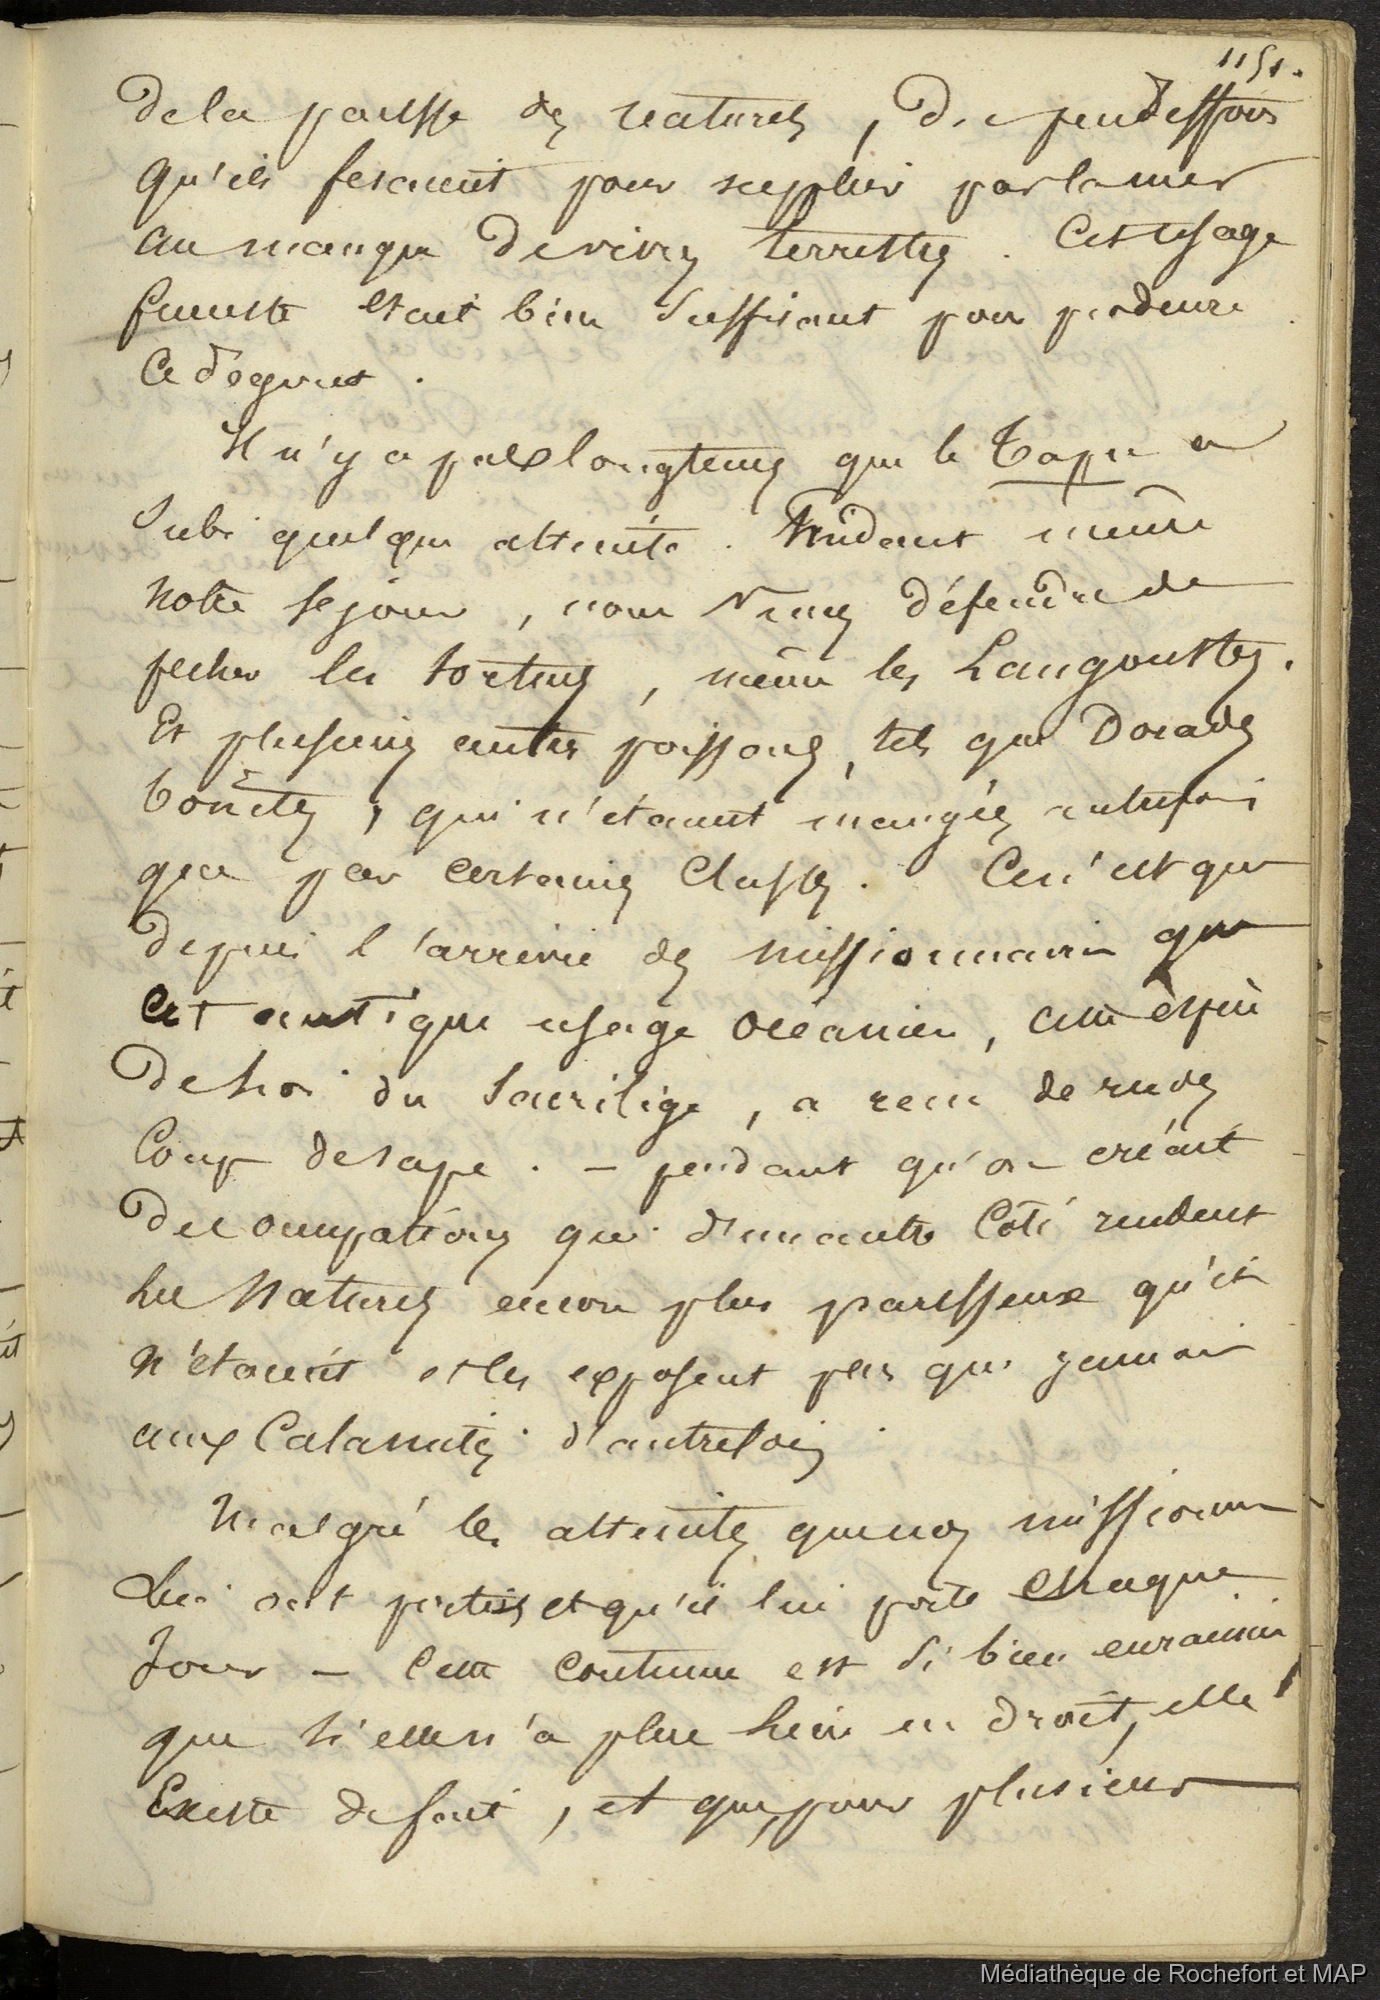 1151.
de la paresse des naturels, du peu d'efforts
qu'ils fesaient pour suppléer par la mer
au manque de vivres terrestres. Cet usage
funeste etait bien suffisant pour produire
ce dégout.
Il n'y a pas longtems que le Tapu a
subi quelque atteinte. Pendant même
notre sejour, nous vimes défendre de
pecher les tortues, même les Langoustes.
Et plusieurs autres poissons, tels que Dorades
bonites, qui n'étaient mangés autrefois
que par certaines classes. Ce n'est que
depuis l'arrivée des missionnaires que
cet antique usage océanien, cette espèce
de loi du sacrilège, a recu de rudes
coups de sape. – pendant qu'on créait
des occupations qui d'un autre côté rendent
les Naturels encore plus paresseux qu'ils
n'etaient et les exposent plus que jamais
aux Calamités d'autrefois.
Malgré les atteintes que nos missionnaires
lui ont portées et qu'ils lui porte chaque
Jour – Cette coutume est si bien enracinée
que si elle n'a plus lieu en droit, elle
Existe de fait, et que, pour plusieurs
Médiathèque de Rochefort et MAP